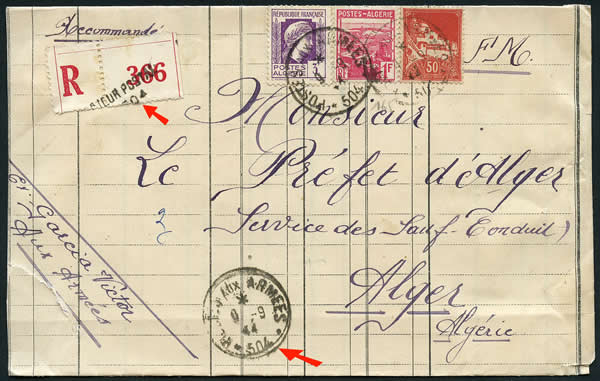 Recommandé
R 366
504
RÉPUBLIQUE FRANÇAISE
POSTES
ALGÉRIE
POSTES-ALGÉRIE
1F
50
F.M.
Monsieur
Le Préfet d'Alger
Service des Sauf-Conduit)
Alger
Algérie
2
Ex. Garcia Victor
Aux Armées
AUX ARMÉES
9
44
* 504 *